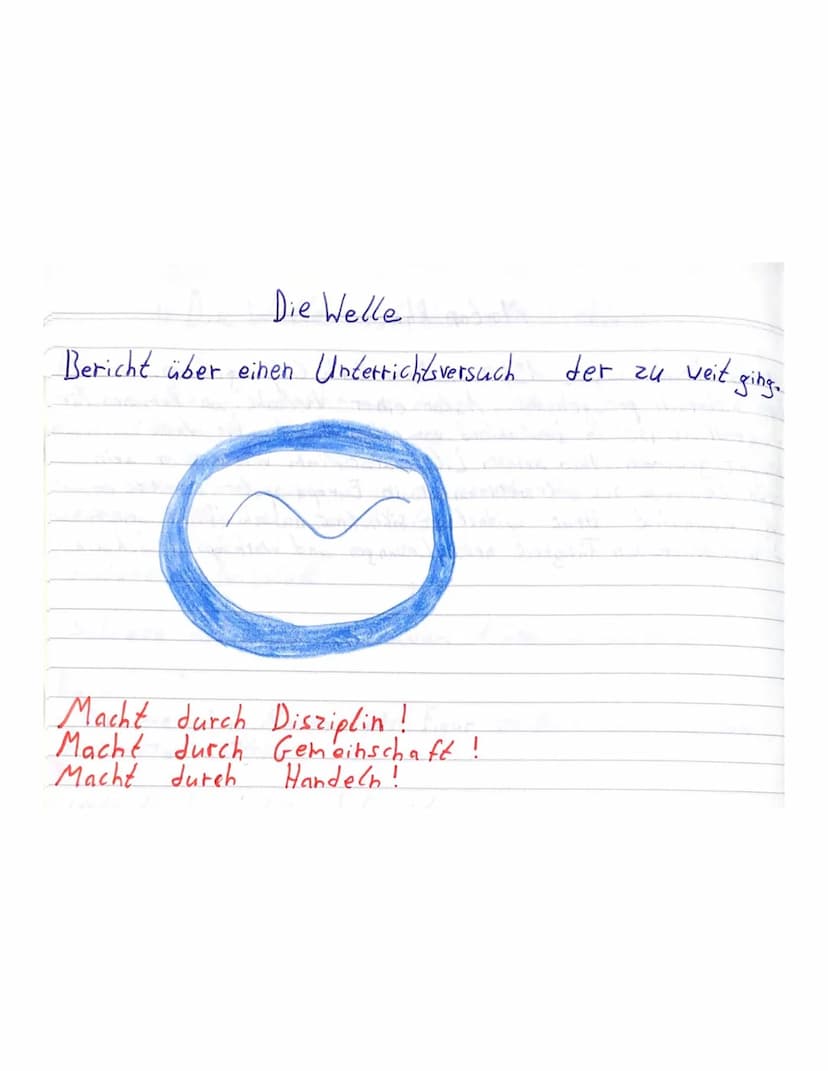 Die Welle
Bericht über einen Unterrichtsversuch der zu weit ging.
Macht durch Disziplin!
Macht durch Gemeinschaft!
Macht durch Handeln!